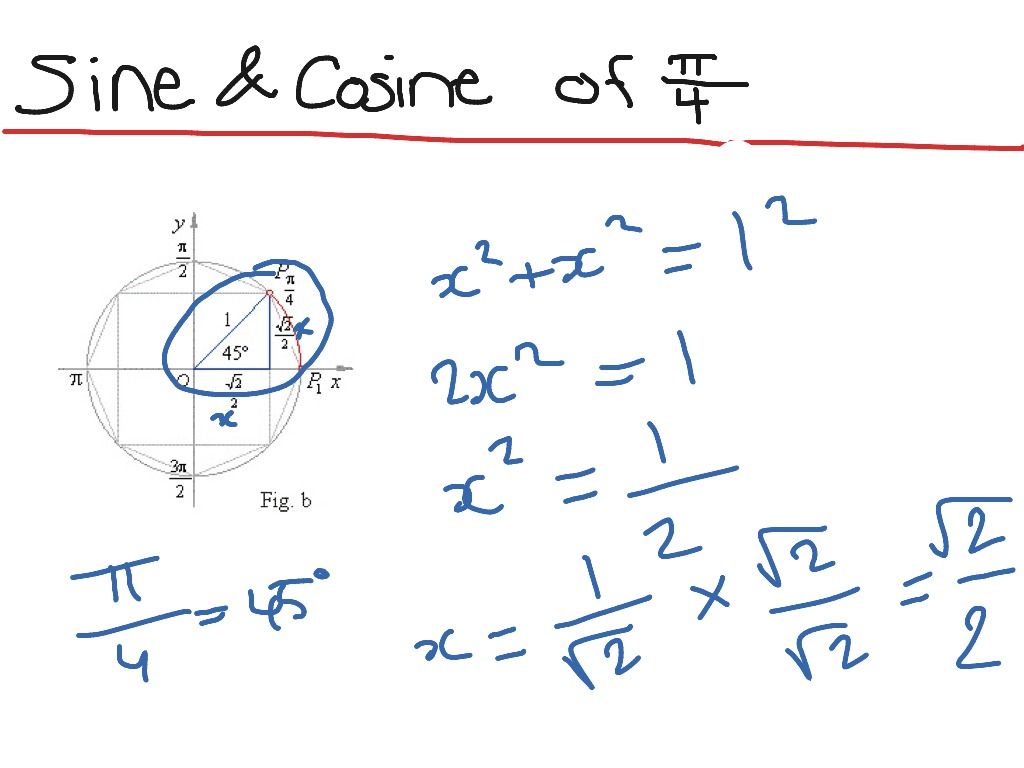 Sine & Cosine of π/4
y
π/2
P π/4
1
√2/2 x
45°
π
O
√2/2
P₁ x
x
3π/2
Fig. b
π/4 = 45°
x² + x² = 1²
2x² = 1
x² = 1/2
x = 1/√2 × √2/√2 = √2/2